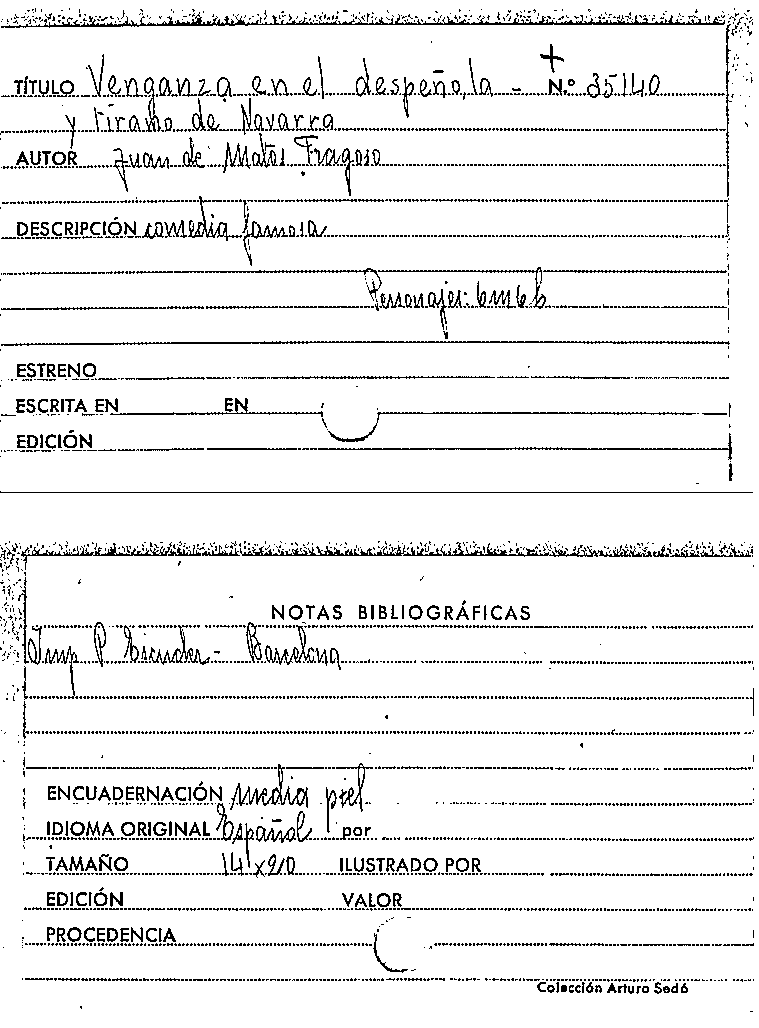 +
TÍTULO Venganza en el despeño, la - N.º 35140
y tirano de Navarra
AUTOR Juan de Matos Fragoso
DESCRIPCIÓN comedia famosa
Personajes: 6m6h
ESTRENO
ESCRITA EN EN
EDICIÓN
NOTAS BIBLIOGRÁFICAS
Imp P. Escuder - Barcelona
ENCUADERNACIÓN media piel
IDIOMA ORIGINAL Español por
TAMAÑO 14'x20 ILUSTRADO POR
EDICIÓN VALOR
PROCEDENCIA
Colección Arturo Sedó